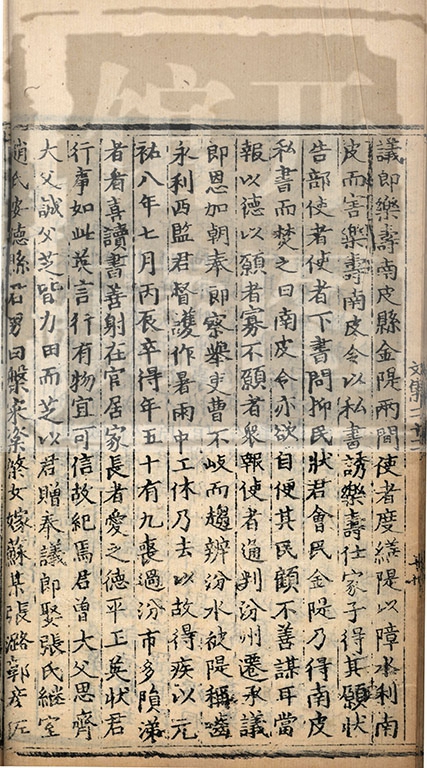 議郎樂壽南皮縣金隄兩間使者度繕隄以障水利南
皮而害樂壽南皮令以私書誘樂壽仕家子得其願狀
告部使者使者下書問抑民狀君會民金隄乃得南皮
私書而焚之曰南皮令亦欲自便其民顧不善謀耳當
報以德以願者寡不願者衆報使者通判汾州遷承議
郎恩加朝奉郎察舉吏曹不歧而趨辨汾水被隄稱嚙
永利西監君督護作暑雨中工休乃去以故得疾以元
祐八年七月丙辰卒得年五十有九喪過汾市多隕涕
者君喜讀書善射在官居家長者愛之德平工英狀君
行事如此英言行有物宜可信故紀焉君曾大父思齊
大父誠父芝皆力田而芝以君贈奉議郎娶張氏繼室
趙氏安德縣君男曰槃
女嫁蘇集張潞郭彥
文集三十二